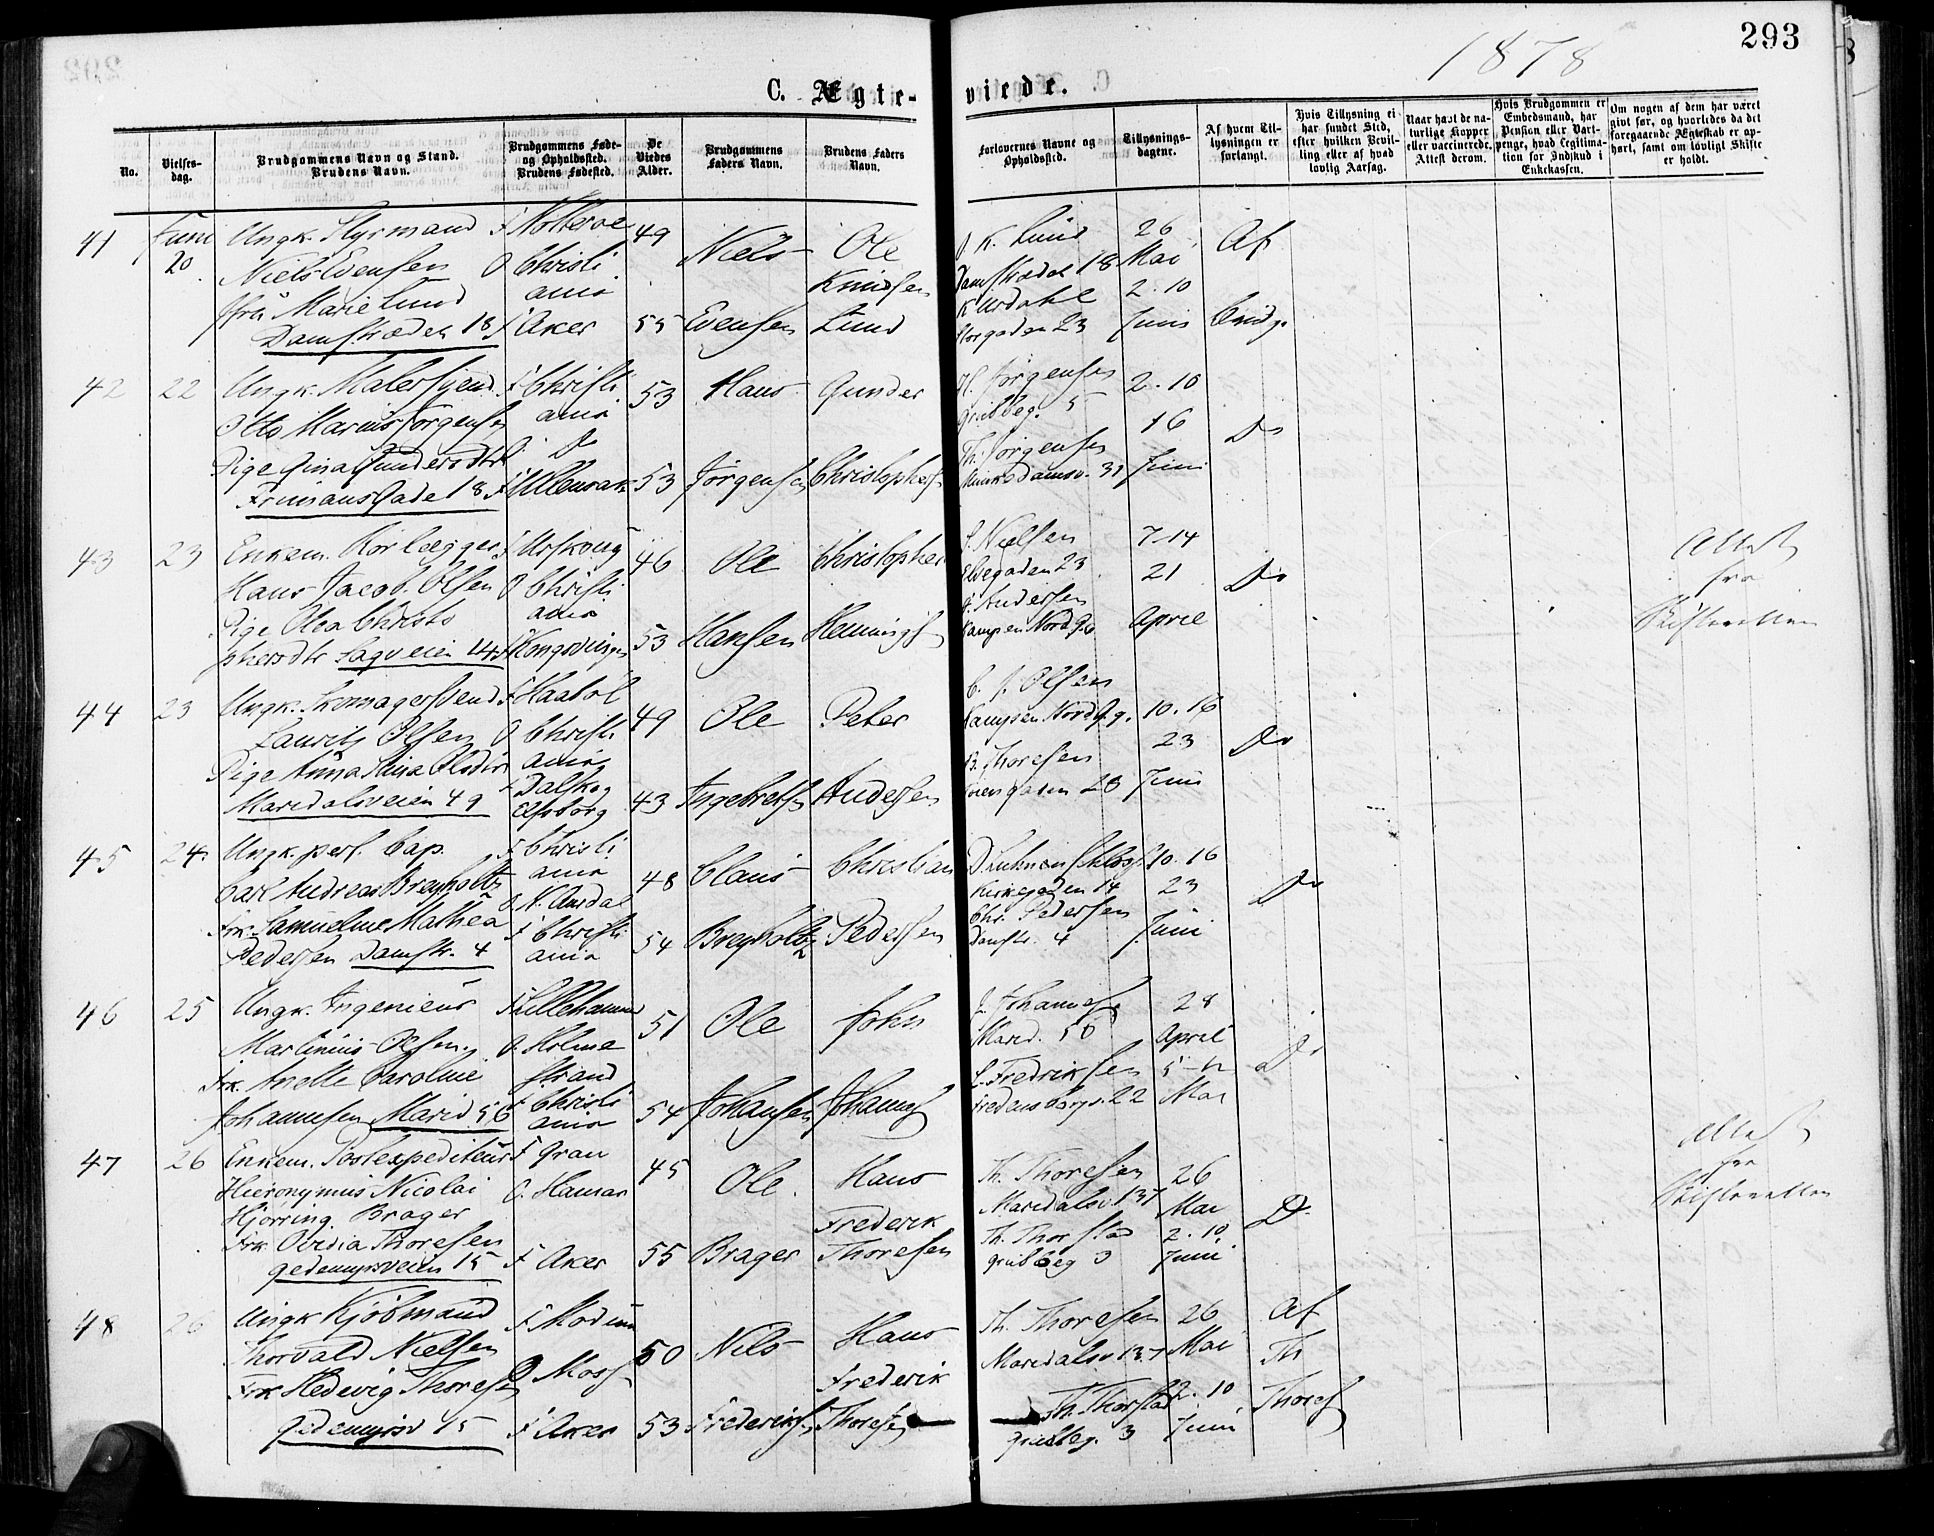 293
1878
C. Ægte-
viede.
No.
Vielses-
dag.
Brudgommens Navn og Stand.
Brudens Navn.
Brudgommens Føde-
og Opholdssted.
Brudens Fødested.
De
Viedes
Alder.
Brudgommens
Faders Navn.
Brudens Faders
Navn.
Forlovernes Navne og
Opholdssted.
Tillysnings-
dagene.
Af hvem Til-
lysningen er
forlangt.
Hvis Tillysning ei
har fundet Sted,
efter hvilken Bevil-
ling eller af hvad
lovlig Aarsag.
Naar havt de na-
turlige Kopper
eller vaccinerede.
Attest derom.
Hvis Brudgommen er
Embedsmand, har
Pension eller Vart-
penge, hvad Legitima-
tion for Indskud i
Enkekassen.
Om nogen af dem har været
gift før, og hvorledes da det
foregaaende Ægteskab er op-
hørt, samt om lovligt Skifte
er holdt.
41 Juni 20
Ungk. Styrmand
Niels Evensen
Jfru Marie Lund
Damstrædet 18
F Notterøe
O Christi
ania
F Aker
49
55
Niels
Evensen
Ole
Knudsen
Lund
K. Lund
Damstrædet 18
Storgaden 23
26
Mai
2. 10
Juni
Af
Brudg.
42 22
Ungk. Malersvend
Otto Marius Jørgensen
Pige Gina Gundersdtr
Frimans Gade 18
F Christi
ania
O Do
F Ullensak
53
53
Hans
Jørgensen
Gunder
Christophers
H. Jørgensen
Grubbeg. 5
Th. Jørgensen
Munkedamsv. 31
2. 10
16
Juni
Do
43 23
Enkem. Rørlægger
Hans Jacob Olsen
Pige Olea Christo
phersdtr Sagveien 14
F Urskoug
O Christi
ania
F Kongsvinger
46
53
Ole
Hansen
Christopher
Hemmings
S. Nielsen
Elvegaden 23
Andersen
Kampen Nord G. 6
7-14
21
April
Do
Attest
fra
Skifteretten
44 23
Ungk. Skomagersvend
Laurits Olsen
Pige Anna Stina Olsdtr
Maridalsveien 49
F Haabøl
O Christi
ania
F Dalskog
Elfsborg
49
43
Ole
Ingebretsen
Peter
Andersen
C. J. Olsen
Kampen Nord G. 9.
B. Thoresen
28
10. 16
23
Juni
Do
45 24.
Ungk. perf. Cap.
Carl Andreas Breyholtz
Frk. Samueline Mathea
Pedersen Damstr. 4
F Christi
ania
O. N. Aurdal
F Christi
ania
48
54
Claus
Breyholtz
Christian
Pedersen
Kirkegaden 14
Chr. Pedersen
Damstr. 4
10. 16
23
Juni
Do
46 25
Ungk. Ingenieur
Martinius Olsen.
Frk. Anette Caroline
Johannesen Marid 56
F Lillehammer
O. Holme
strand
F Christi
ania
51
54
Ole
Johansen
John
Johannes
J. Johannes
Marid. 50
L. Fredriksen
Fredensborgv. 22
28
April
5-12
Mai
Do
47 26
Enkem. Postexpediteur
Hieronymus Nicolai
Hjørring Brager
Frk. Ovedia Thoresen
Gedemyrsveien 15
F Gran
O. Hamar
F Aker
45
55
Ole
Brager
Hans
Frederik
Thoresen
Th. Thoresen
Maridalsv. 137
Th. Thorstad
Grubbeg 3
26
Mai
2. 10
Juni
Do
Attest
fra
Skifteretten
48 26
Ungk Kjøbmand
Thorvald Nielsen
Frk Hedevig Thoresen
Gedemyrsv 15
F Modum
O Moss
F Aker
50
53
Nils
Frederiksen
Hans
Frederik
Thoresen
Th. Thoresen
Maridalsv 137
Th. Thorstad
Grubbeg. 3
26
Mai
2. 10
Juni
Af
Th
Thores